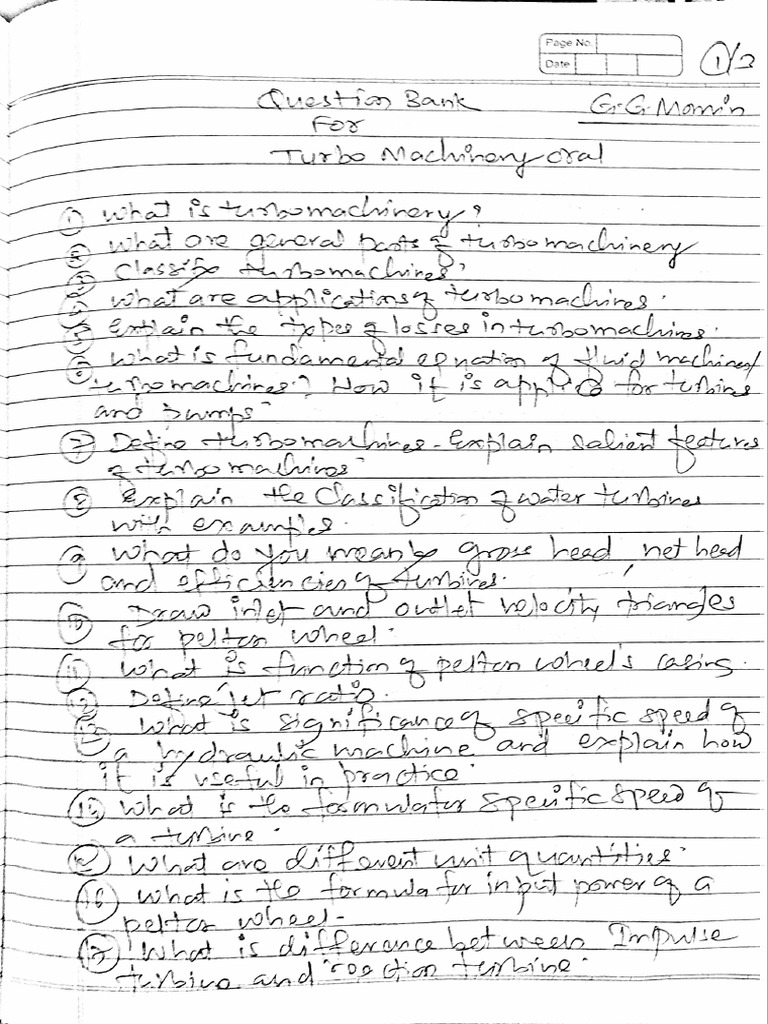 Page No.
Date
1/3
Question Bank G. G. Momin
For
Turbo Machinery oral
① What is turbomachinery?
② What are general parts of turbomachinery
③ Classify turbomachines?
④ What are applications of turbomachines.
⑤ Explain the types of losses in turbomachines.
⑥ What is fundamental equation of fluid machines/
turbomachines? How it is applied for turbines
and pumps
⑦ Define turbomachines - Explain salient features
of turbomachines
⑧ Explain the classification of water turbines
with examples.
⑨ What do you mean by gross head, net head
and efficiencies of turbines.
⑩ Draw inlet and outlet velocity triangles
for pelton wheel.
⑪ What is function of pelton wheel's casing.
⑫ Define jet ratio.
⑬ What is significance of specific speed of
a hydraulic machine and explain how
it is useful in practice.
What is the formula for specific speed of
a turbine.
What are different unit quantities.
⑯ What is the formula for input power of a
pelton wheel-
⑰ What is difference between Impulse
turbine and reaction turbine.